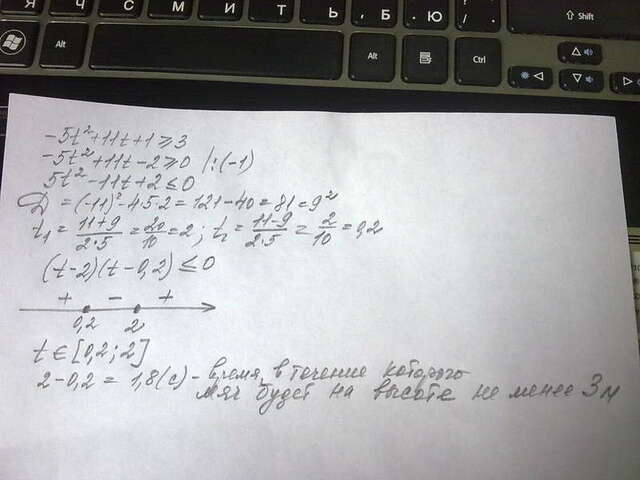 Я Ч С М И Т Ь , Б . Ю / . Shift
Alt Alt Ctrl
-5t²+11t+1≥3
-5t²+11t-2≥0 /:(-1)
5t²-11t+2≤0
D = (-11)²-4·5·2=121-40=81=9²
t₁ = (11+9)/(2·5) = 20/10 = 2; t₂ = (11-9)/(2·5) = 2/10 = 0,2
(t-2)(t-0,2) ≤ 0
+ - +
0,2 2
t∈[0,2;2]
2-0,2=1,8(с) - время, в течение которого
мяч будет на высоте не менее 3м